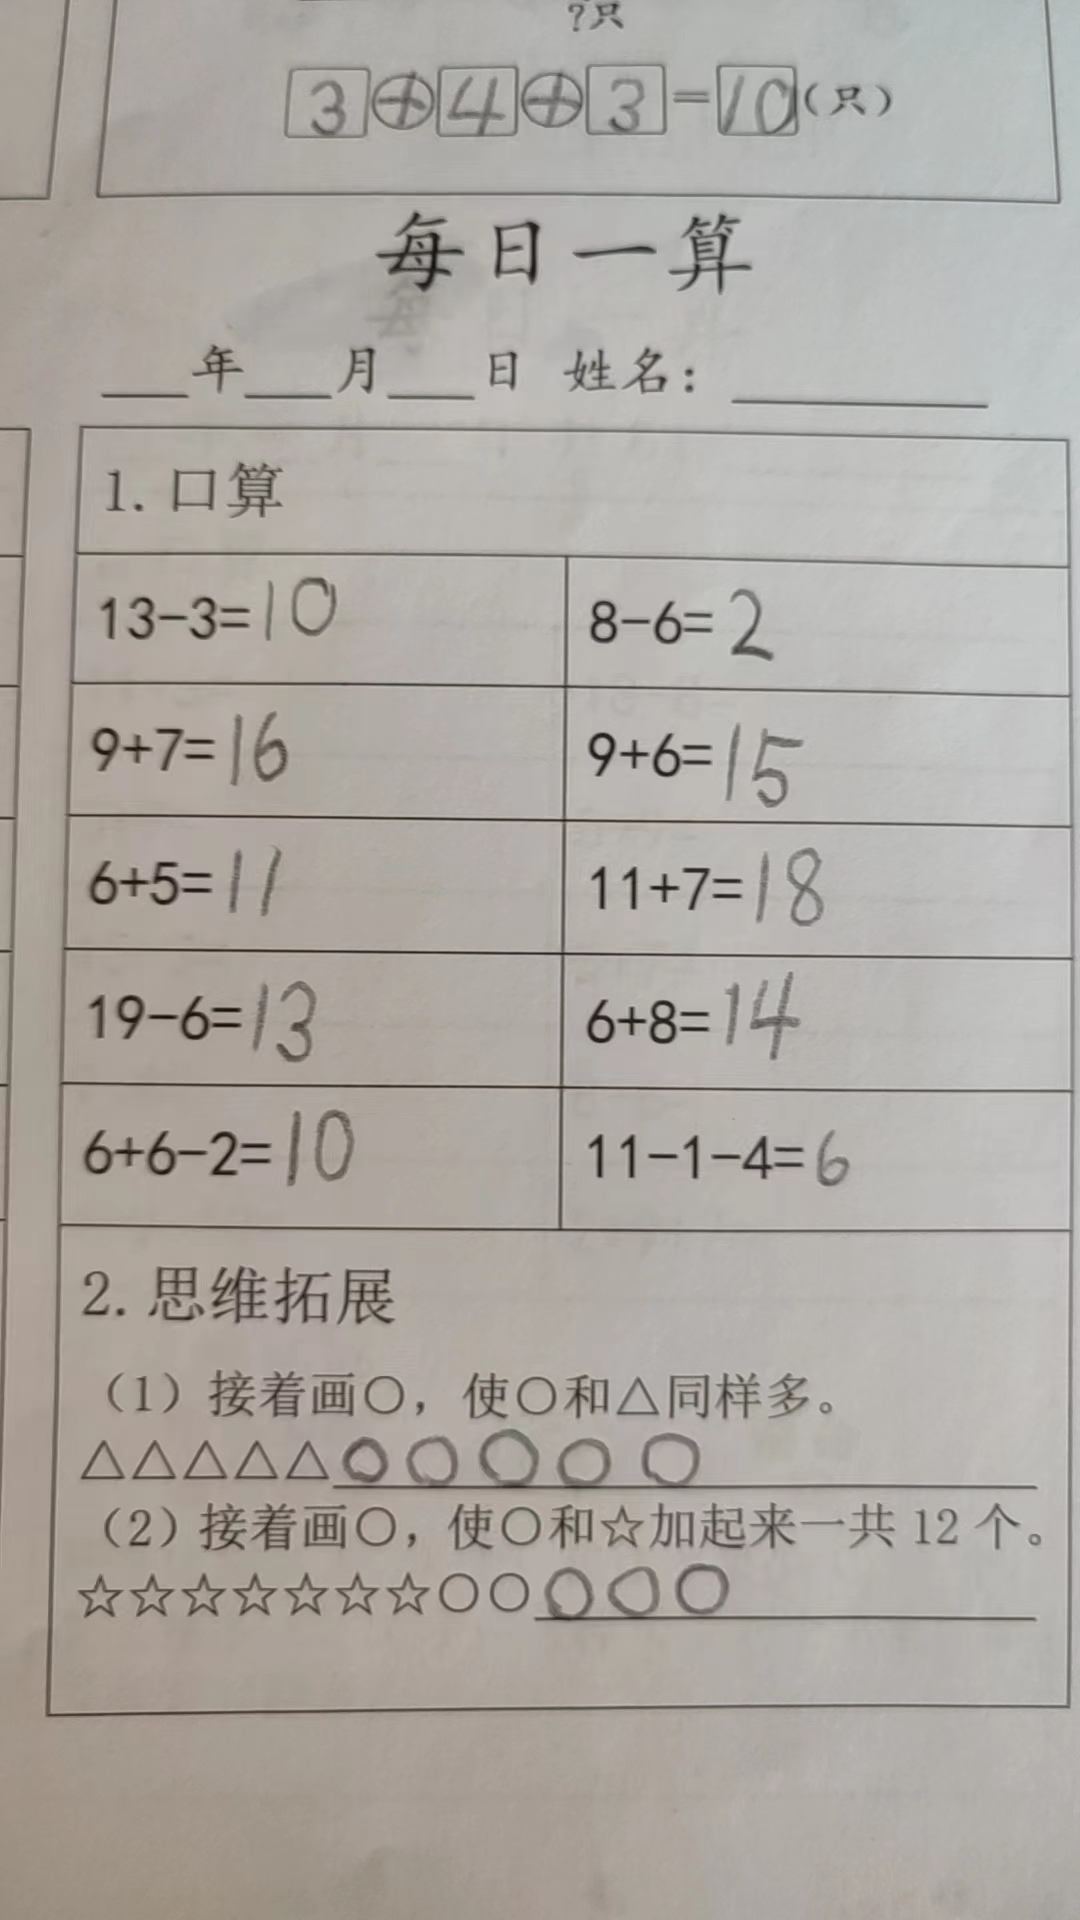 ?只
3⊕4⊕3=10(只)
每日一算
___年___月___日 姓名：_________
1.口算
13-3=10 8-6=2
9+7=16 9+6=15
6+5=11 11+7=18
19-6=13 6+8=14
6+6-2=10 11-1-4=6
2.思维拓展
（1）接着画○，使○和△同样多。
△△△△△○○○○○
（2）接着画○，使○和☆加起来一共12个。
☆☆☆☆☆☆☆○○○○○